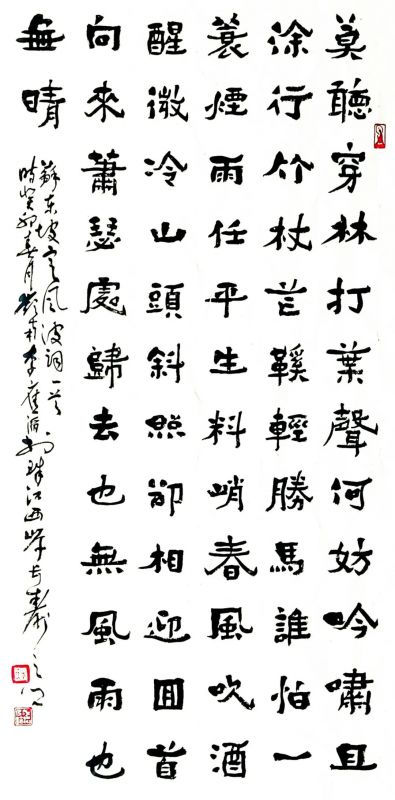 莫聽穿林打葉聲何妨吟嘯且
涂行竹杖芒鞵輕勝馬誰怕一
蓑煙雨任平生料峭春風吹酒
醒微冷山頭斜照卻相迎回首
向來蕭瑟處歸去也無風雨也
無晴
蘇東坡定風波詞一首
時癸卯春月 珠江西岸